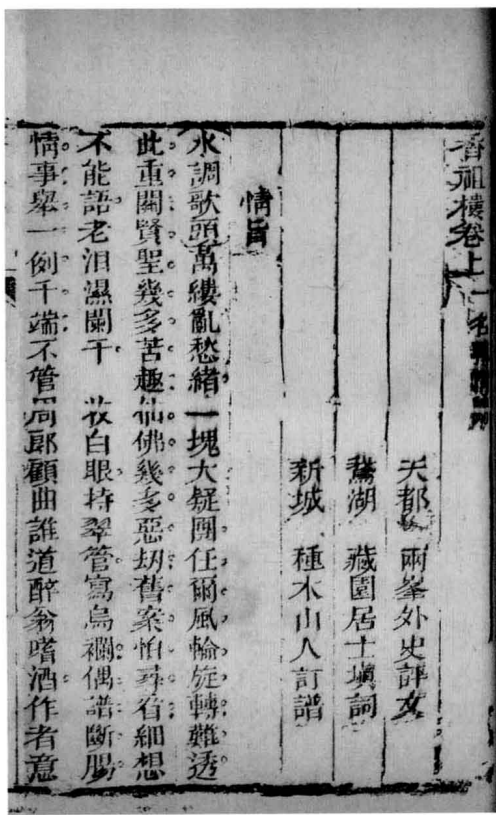 香祖樓卷上 一名
天都 兩峯外史評文
鵞湖 藏園居士塡詞
新城 種木山人訂譜
情旨
水調歌頭萬縷亂愁緒一塊大疑團任爾風輪旋轉難透
此重關賢聖幾多苦趣仙佛幾多惡刼舊案怕尋看細想
不能語老泪濕闌干 收白眼持翠管寫烏襴偶譜斷腸
情事舉一例千端不管周郎顧曲誰道醉翁嗜酒作者意